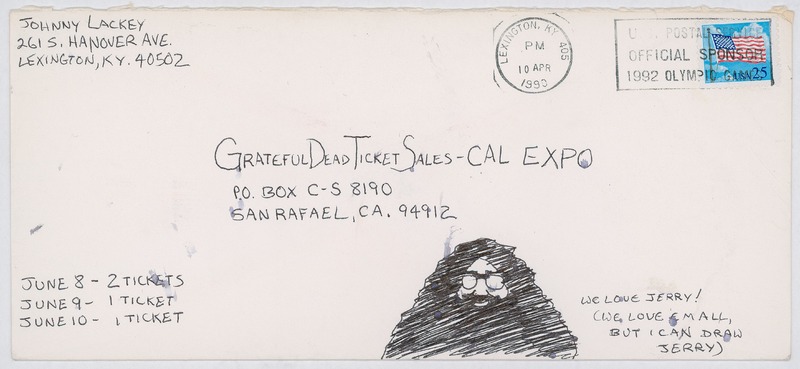 JOHNNY LACKEY
261 S. HANOVER AVE.
LEXINGTON, KY. 40502
LEXINGTON, KY 405
PM
10 APR
1990
U.S. POSTAL
OFFICIAL SPONSOR
1992 OLYMPIC GAMES
25
GRATEFUL DEAD TICKET SALES - CAL EXPO
P.O. BOX C-S 8190
SAN RAFAEL, CA. 94912
JUNE 8 - 2 TICKETS
JUNE 9 - 1 TICKET
JUNE 10 - 1 TICKET
WE LOVE JERRY!
(WE LOVE EM ALL,
BUT I CAN DRAW
JERRY)